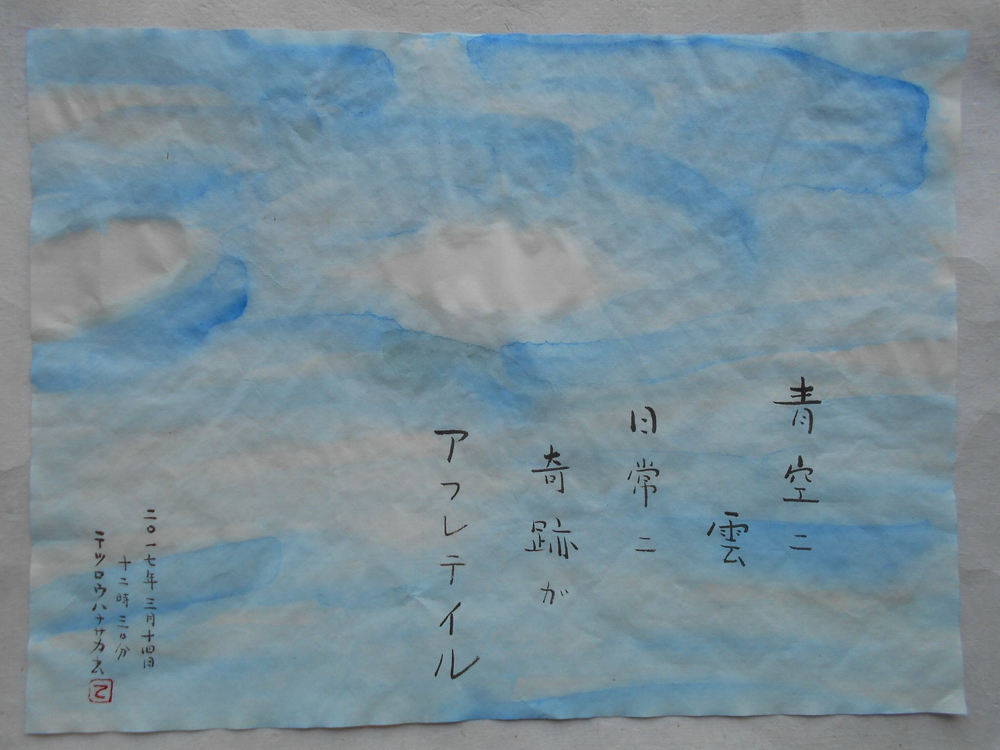 青空ニ
雲
日常ニ
奇跡が
アフレテイル
二〇一七年三月十四日
十二時三〇分
テツロウハナサカス
乙